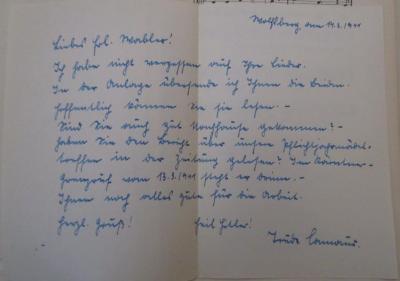 Wolfsberg, am 14.3.1941
Liebes Frl. Wabler!
Ich habe nicht vergessen auf Ihre Lieder.
In der Anlage übersende ich Ihnen die beiden.
Hoffentlich können Sie sie lesen. -
Sind Sie auch gut nachhause gekommen? -
Haben Sie den Bericht über unsere Pflichtjahrmädel-
treffen in der Zeitung gelesen? Im Kärntner-
Grenzruf vom 13.3.1941 steht er drinn. -
Ihnen noch alles gute für die Arbeit.
Herzl. Gruß! Heil Hitler!
Trude